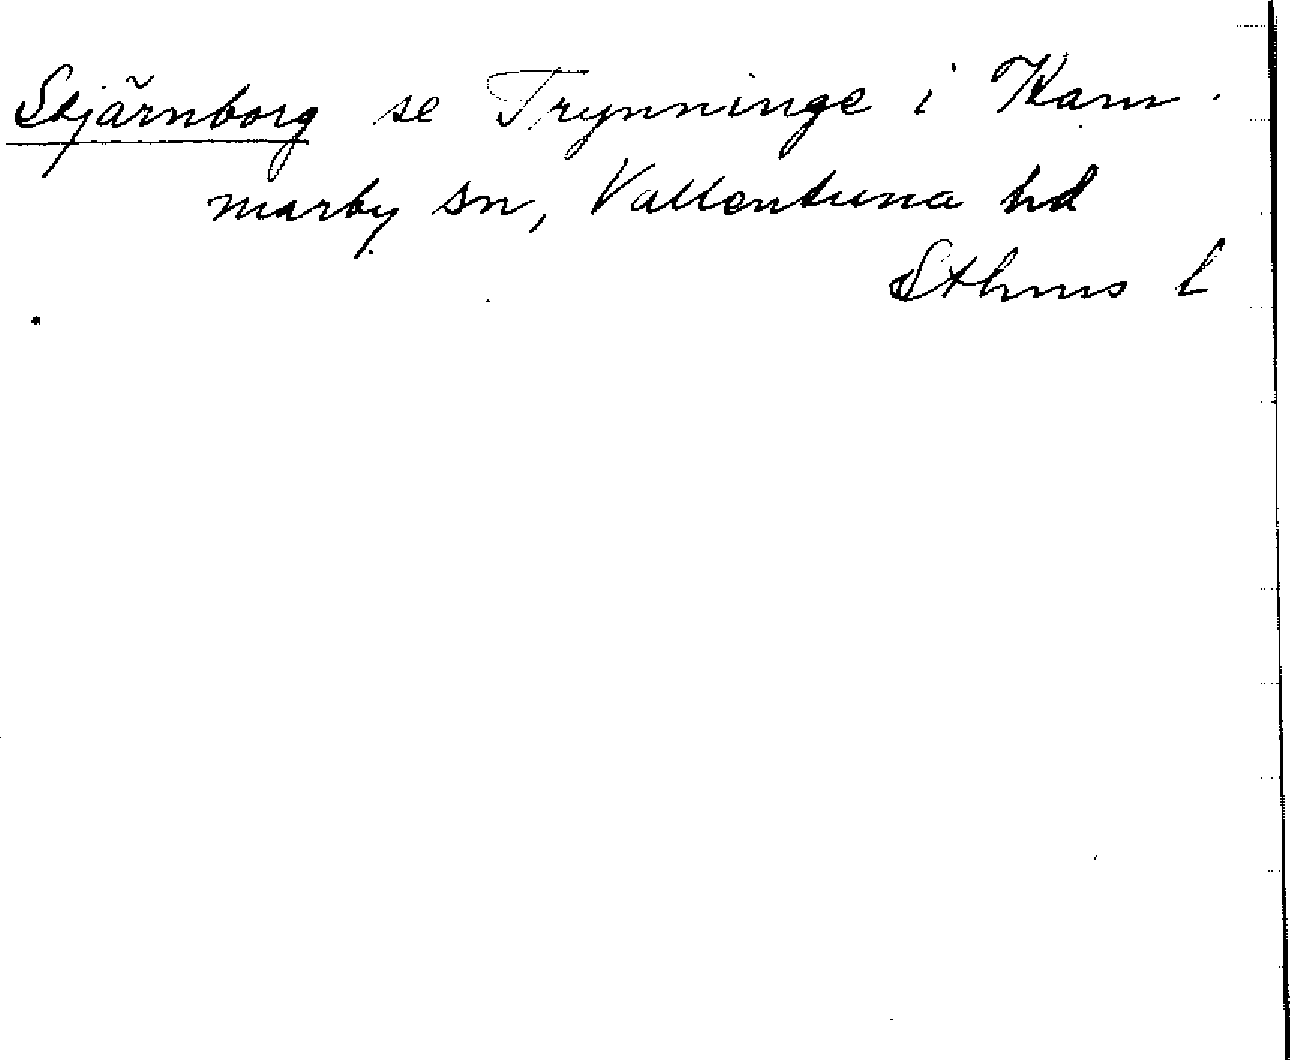 Stjärnborg se Trynninge i Kam-
marby sn, Vallentuna hd
Sthms l